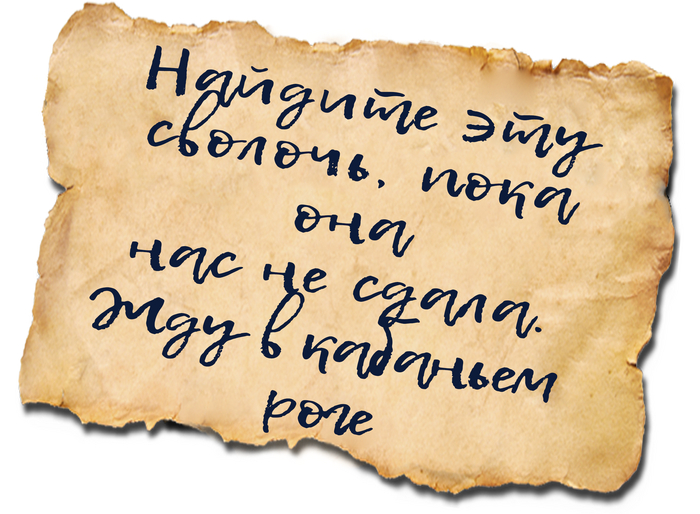 Найдите эту
сволочь, пока
она
нас не сдала.
Жду в кабаньем
роге